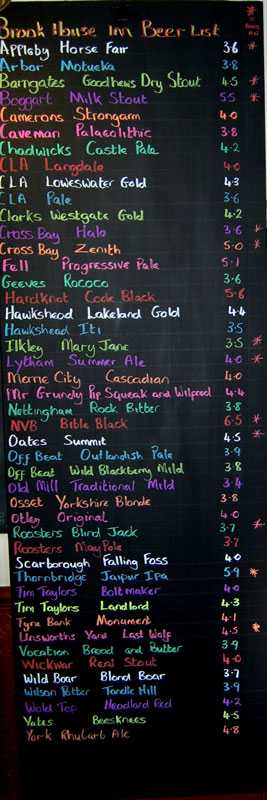 Brook House Inn Beer List
Appleby Horse Fair 3.6 *
Arbor Motueka 3.8
Barngates Goodhews Dry Stout 4.5 *
Boggart Milk Stout 5.5 *
Camerons Strongarm 4.0
Caveman Palaeolithic 3.8
Chadwicks Castle Pale 4.2
CLA Langdale 4.0
CLA Loweswater Gold 4.3
CLA Pale 3.6
Clarks Westgate Gold 4.2
Cross Bay Halo 3.6 *
Cross Bay Zenith 5.0 *
Fell Progressive Pale 5.1
Geeves Rococo 3.6
Hardknot Code Black 5.6
Hawkshead Lakeland Gold 4.4
Hawkshead Iti 3.5
Ilkley Mary Jane 3.5 *
Lytham Summer Ale 4.0 *
Merrie City Cascadian 4.0
Mr Grundy Pip Squeak and Wilfred 4.4
Nottingham Rock Bitter 3.8
NVB Bible Black 6.5 *
Oates Summit 4.5 *
Off Beat Outlandish Pale 3.9
Off Beat Wild Blackberry Mild 3.8
Old Mill Traditional Mild 3.4
Osset Yorkshire Blonde 3.8
Otley Original 4.0
Roosters Blind Jack 3.7 *
Roosters MayPole 3.7
Scarborough Falling Foss 4.0
Thornbridge Jaipur Ipa 5.9 *
Tim Taylors Boltmaker 4.0
Tim Taylors Landlord 4.3
Tyne Bank Monument 4.1
Unsworths Yard Last Wolf 4.5 *
Vocation Bread and Butter 3.9
Wickwar Real Stout 4.0
Wild Boar Blond Boar 3.7
Wilson Potter Tandle Hill 3.9
Wold Top Headland Red 4.2
Yates Beesknees 4.5
York Rhubarb Ale 4.8